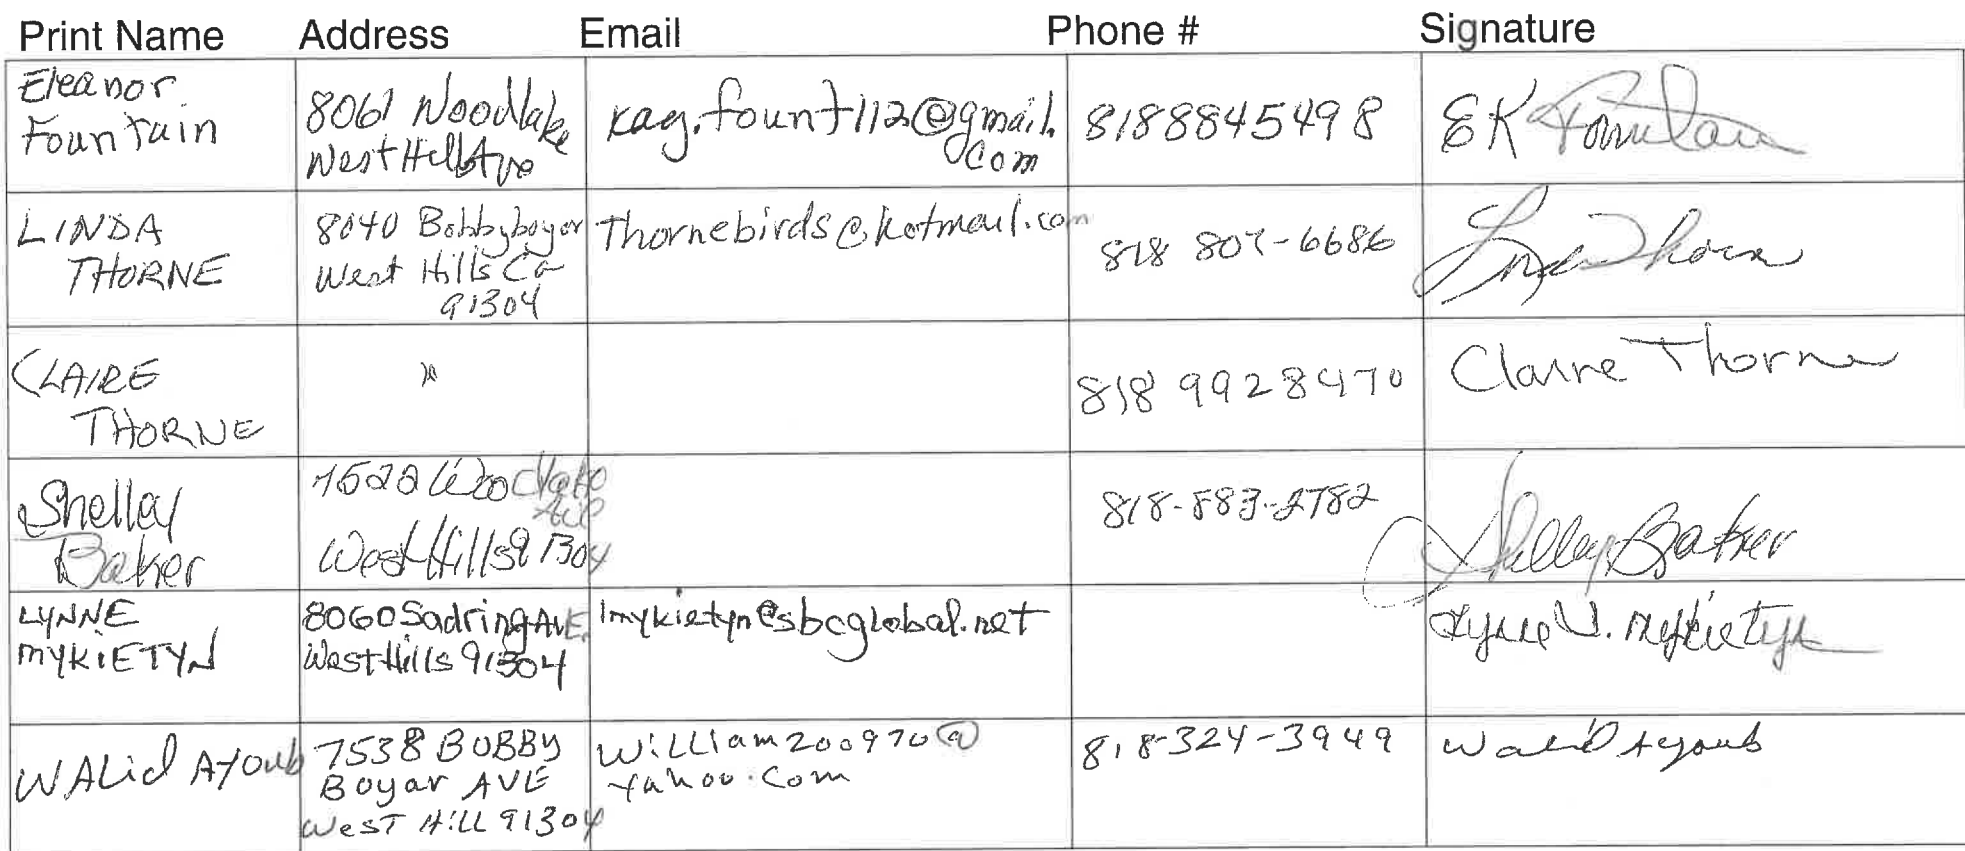 Print Name Address Email Phone # Signature
Eleanor
Fountain
8061 Woodlake
West Hills Ave
kag.fount112@gmail.
com
8188845498
EK Fountain
LINDA
THORNE
8040 Bobbyboyar
West Hills Ca
91304
Thornebirds@hotmail.com
818 807-6686
Linda Thorne
CLAIRE
THORNE
"
818 9928470
Claire Thorne
Shelley
Baker
7522 Woodlake
Ave
West Hills 91304
818-883-2782
Shelley Baker
LYNNE
MYKIETYN
8060 Sadring AVE.
West Hills 91304
lmykietyn@sbcglobal.net
Lynne V. Mykietyn
WALid AYoub
7538 BOBBY
Boyar AVE
WesT HiLL 91304
William200970@
yahoo.com
818-324-3949
Walid Ayoub